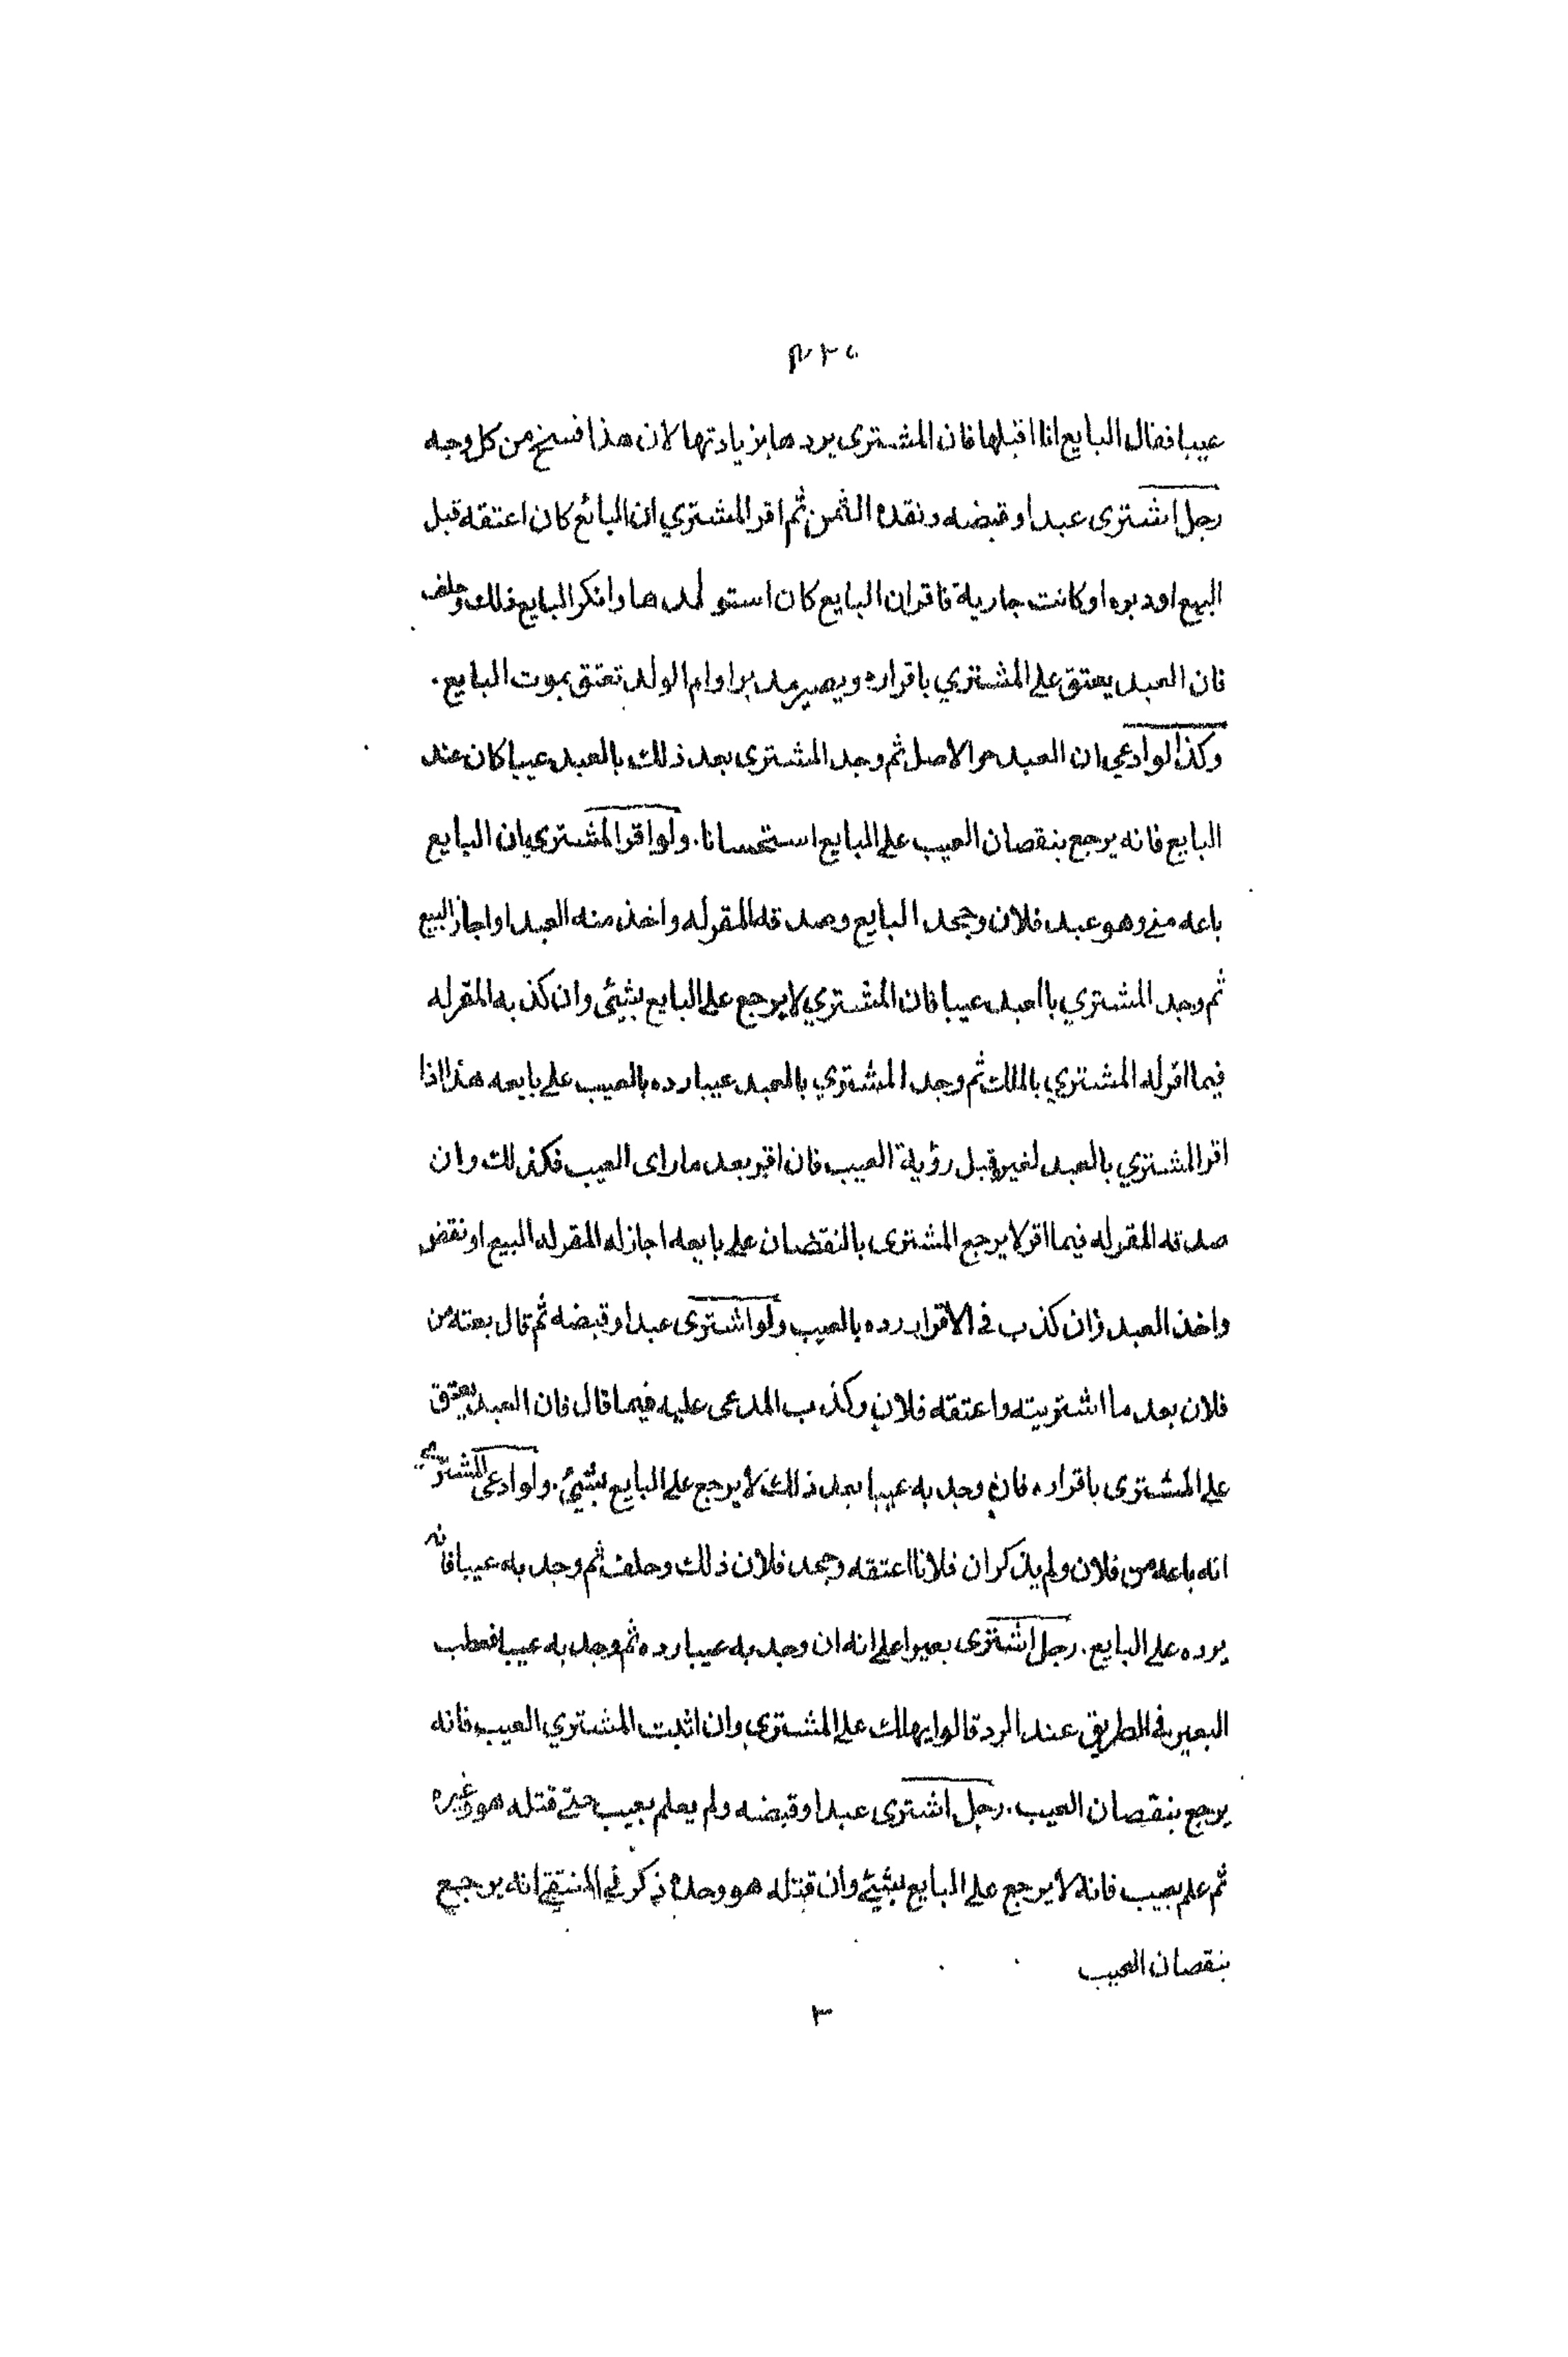 عيبا فقال البايع انا اقبلها فان المشترى يردها بزيادتها لان هذا فسخ من كل وجه
رجل اشترى عبدا وقبضه ونقده الثمن ثم اقر المشتري ان البائع كان اعتقه قبل
البيع او دبره او كانت جارية فاقر ان البايع كان استولدها وانكر البايع ذلك وحلف
فان العبد يعتق علي المشتري باقراره ويصير مدبرا وام الولد تعتق بموت البايع.
وكذا لو ادعي ان العبد حر الاصل ثم وجد المشترى بعد ذلك بالعبد عيبا كان عند
البايع فانه يرجع بنقصان العيب علي البايع استحسانا. ولو اقر المشتري بان البايع
باعه مني وهو عبد فلان وجحد البايع وصدقه المقر له واخذ منه العبد او اجاز البيع
ثم وجد المشتري باالعبد عيبا فان المشتري لا يرجع علي البايع بشيئ وان كذبه المقر له
فيما اقر له المشتري بالملك ثم وجد المشتري بالعبد عيبا رده بالعيب علي بايعه هذا اذا
اقر المشتري بالعبد لغيره قبل رؤية العيب فان اقر بعد ما راى العيب فكذلك وان
صدقه المقر له فيما اقر لا يرجع المشترى بالنقضان علي بايعه اجاز له المقر له البيع او نقض
واخذ العبد وان كذب في الاقرار رده بالعيب ولو اشترى عبدا وقبضه ثم قال بعته من
فلان بعد ما اشتريته واعتقه فلان وكذب المدعى عليه فيما قال فان العبد يعتق
علي المشترى باقراره فان وجد به عيبا بعد ذلك لا يرجع علي البايع بشيئ. ولو ادعى المشتري
انه باعه من فلان ولم يذكر ان فلانا اعتقه وجحد فلان ذلك وحلف ثم وجد به عيبا فانه
يرده علي البايع. رجل اشترى بعيرا علي انه ان وجد به عيبا رده ثم وجد به عيبا فعطب
البعير في الطريق عند الرد قالوا يهلك علي المشترى وان اثبت المشتري العيب فانه
يرجع بنقصان العيب. رجل اشترى عبدا وقبضه ولم يعلم بعيب حتي قتله هو وغيره
ثم علم بعيب فانه لا يرجع علي البايع بشيئ وان قتله هو وحده ذكر في المنتقي انه يرجع
بنقصان العيب
٢